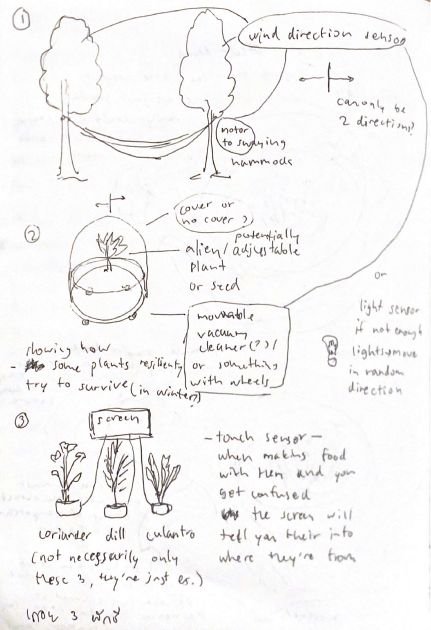 ①
wind direction sensor
can only be
2 directions?
motor
to swaying
hammock
②
cover or
no cover?
potentially
alien/adjustable
plant
or seed
movable
vacuum
cleaner(?)/
or something
with wheels
or
light sensor
if not enough
light → move
in random
direction
showing how
- some plants resiliently
try to survive (in winter)
③
screen
coriander dill culantro
(not necessarily only
these 3, they're just ex.)
- touch sensor -
when making food
with them and you
get confused
the screen will
tell you their info
where they're from
3 ผักชี